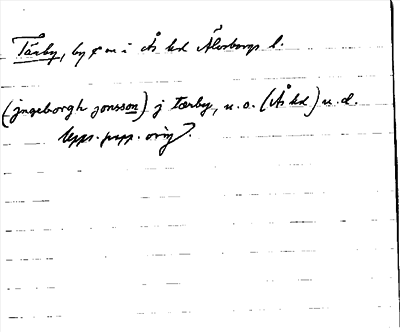 Tärby, by o sn i Ås hd Älvsborgs l.
(jngeborgh jonsson) j tærby, u. o. (Ås hd) u. d.
papp. orig.